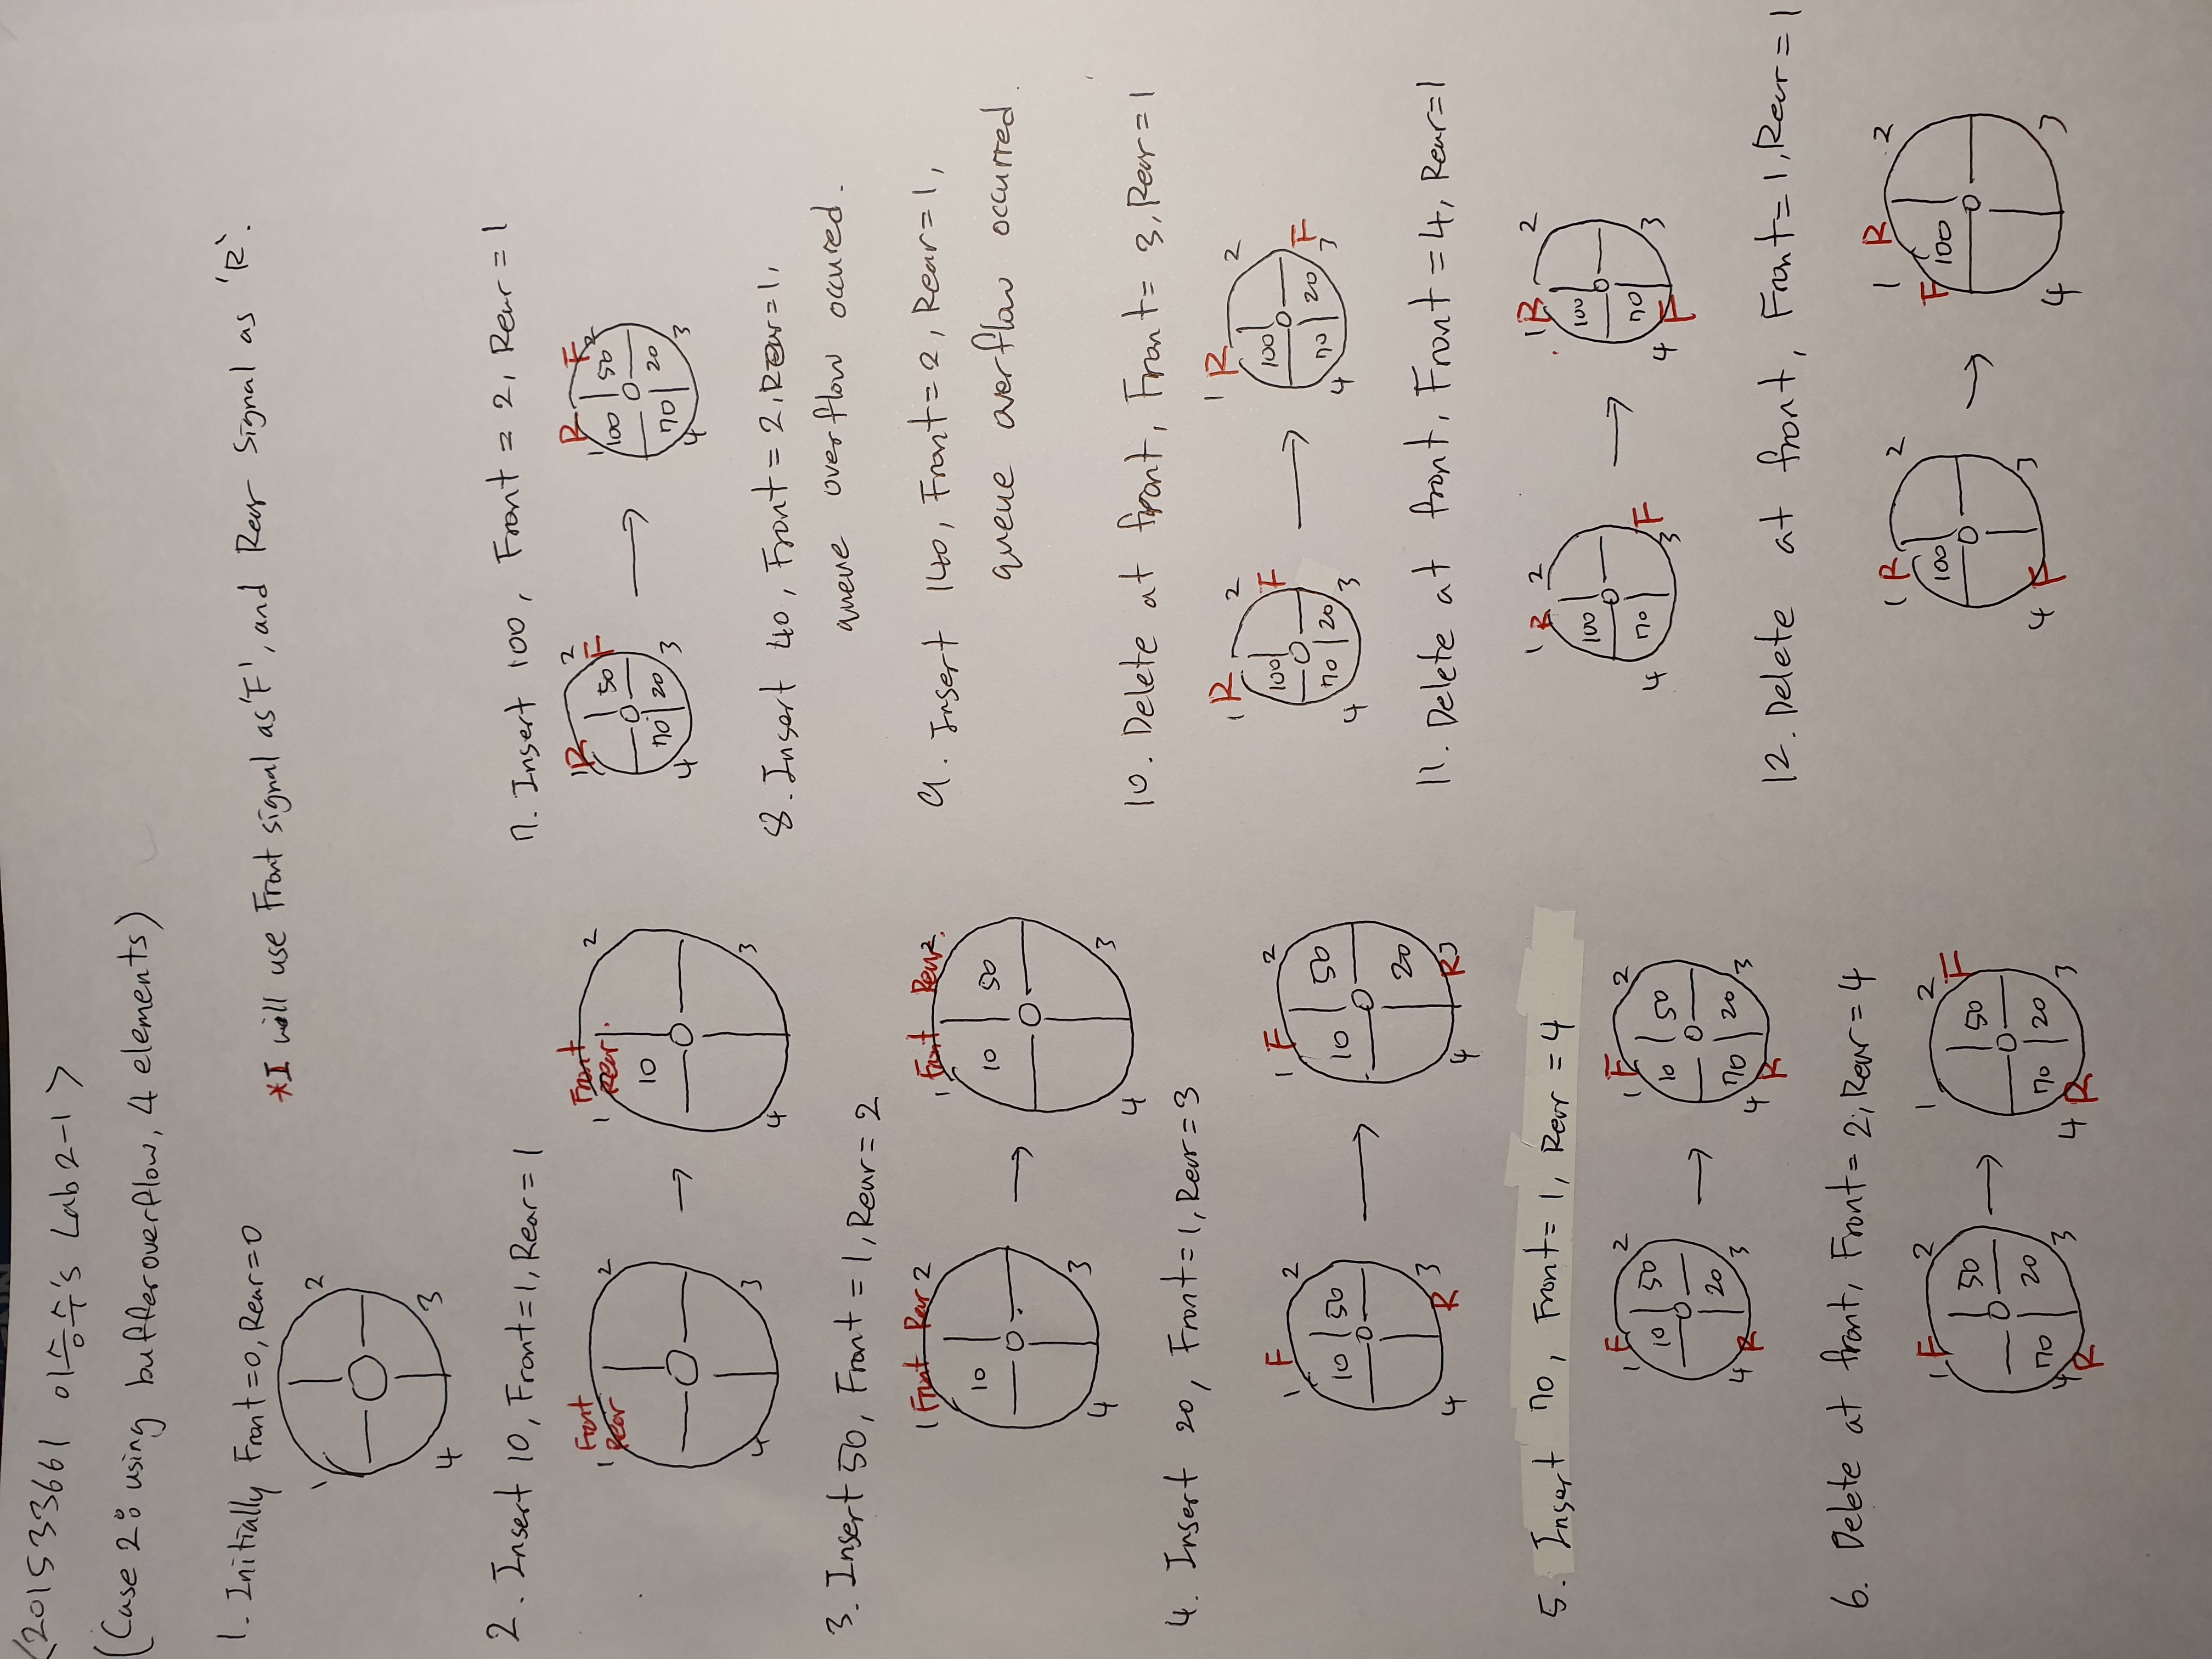 <201533661 이승수's Lab 2-1>
(Case 2: using buffer overflow, 4 elements)
1. Initially Front=0, Rear=0
*I will use Front signal as 'F', and Rear Signal as 'R'.
1 2
4 3
2. Insert 10, Front=1, Rear=1
Front Front
1 Rear 2 1 Rear 2
10
4 3 4 3
3. Insert 50, Front=1, Rear=2
1 Front Rear 2 1 Front Rear 2
10 10 50
4 3 4 3
4. Insert 20, Front=1, Rear=3
1 F 2 1 F 2
10 50 10 50
20
4 R 3 4 R 3
5. Insert 70, Front=1, Rear=4
1 F 2 1 F 2
10 50 10 50
20 70 20
4 R 3 4 R 3
6. Delete at front, Front=2, Rear=4
1 F 2 1 2 F
50 50
70 20 70 20
4 R 3 4 R 3
7. Insert 100, Front=2, Rear=1
1 R 2 F 1 R F 2
50 100 50
70 20 70 20
4 3 4 3
8. Insert 40, Front=2, Rear=1,
queue overflow occured.
9. Insert 140, Front=2, Rear=1,
queue overflow occurred.
10. Delete at front, Front=3, Rear=1
1 R 2 1 R 2
100 F 100
70 20 70 20 F
4 3 4 3
11. Delete at front, Front=4, Rear=1
1 R 2 1 R 2
100 100
70 F 70
4 3 4 F 3
12. Delete at front, Front=1, Rear=1
1 R 2 1 R 2
100 F 100
4 F 3 4 3